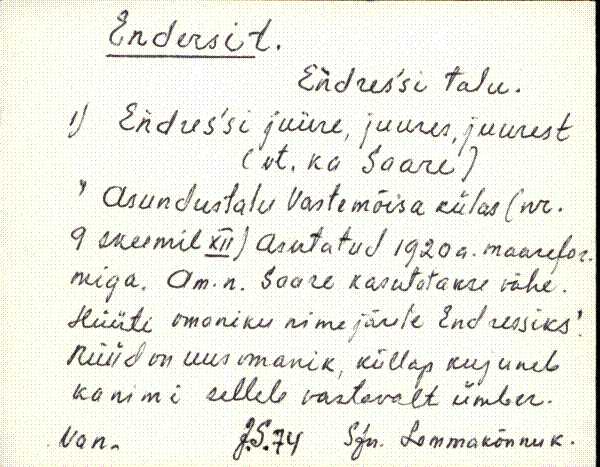 Endersit.
Endres'si talu.
1) Endres'si juure, juures, juurest
(vt. ka Saare)
" Asundustalu Vastemõisa külas (nr.
9 skeemil XII) Asutatud 1920 a. maarefor.
miga. Am. n. Saare kasutatakse vähe.
Hüüti omaniku nime järele Endressiks'.
Nüüd on uus omanik, küllap kujuneb
ka nimi selleb vastavalt ümber.
Van. J.S. 74 Sjn. Lemmakõnnuk.